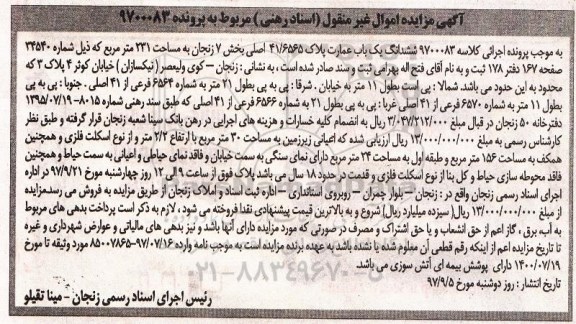 آگهی مزایده اموال غیر منقول (اسناد رهنی) مربوط به پرونده ۹۷۰۰۰۸۳
به موجب پرونده اجرائی کلاسه ۹۷۰۰۰۸۳ ششدانگ یک باب عمارت پلاک ۴۱/۶۵۶۵ اصلی بخش ۷ زنجان به مساحت ۲۳۱ متر مربع که ذیل شماره ۳۴۵۴۰
صفحه ۱۶۷ دفتر ۱۷۸ ثبت و به نام آقای فتح اله بهرامی ثبت و سند صادر شده است، به نشانی: زنجان – کوی ولیعصر (نیکسازان) خیابان کوثر ۴ پلاک ۳ که
محدود به این حدود می باشد. شمالا: پی است بطول ۱۱ متر به خیابان. شرقا: پی به پی بطول ۲۱ متر به شماره ۶۵۶۴ فرعی از ۴۱ اصلی. جنوبا: پی به پی
بطول ۱۱ متر به شماره ۶۵۷۰ فرعی از ۴۱ اصلی غربا: پی به پی بطول ۲۱ به شماره ۶۵۶۶ فرعی از ۴۱ اصلی که طبق سند رهنی شماره ۸۰۱۵–۱۳۹۵/۰۷/۱۹
دفترخانه ۵۰ زنجان در قبال مبلغ ۳/۰۴۷/۲۱۲/۰۰۰ ریال به انضمام کلیه خسارات و هزینه های اجرایی در رهن بانک سینا شعبه زنجان قرار گرفته و طبق نظر
کارشناس رسمی به مبلغ ۱۳/۰۰۰/۰۰۰/۰۰۰ ریال ارزیابی شده که اعیانی زیرزمین به مساحت ۳۰ متر مربع با ارتفاع ۲/۲ متر و از نوع اسکلت فلزی و همچنین
همکف به مساحت ۱۵۶ متر مربع و طبقه اول به مساحت ۲۴ متر مربع دارای نمای سنگی به سمت خیابان و فاقد نمای حیاطی و اعیانی به سمت حیاط و همچنین
فاقد محوطه سازی حیاط و کل بنا از نوع اسکلت فلزی و قدمت در حدود ۱۸ سال می باشد پلاک فوق از ساعت ۹ الی ۱۲ روز چهارشنبه مورخ ۹۷/۹/۲۱ در اداره
اجرای اسناد رسمی زنجان واقع در: زنجان – بلوار چمران – روبروی استانداری – اداره ثبت اسناد و املاک زنجان از طریق مزایده به فروش می رسد.مزایده
از مبلغ ۱۳/۰۰۰/۰۰۰/۰۰۰ ریال( سیزده میلیارد ریال) شروع و به بالاترین قیمت پیشنهادی نقدا فروخته می شود، لازم به ذکر است پرداخت بدهی های مربوط
به آب، برق، گاز اعم از حق انشعاب و یا حق اشتراک و مصرف در صورتی که مورد مزایده دارای آنها باشد و نیز بدهی های مالیاتی و عوارض شهرداری و غیره
تا تاریخ مزایده اعم از اینکه رقم قطعی آن معلوم شده یا نشده باشد به عهده برنده مزایده است به موجب نامه وارده ۹۷/۰۷/۱۶–۸۵۰۰۷۸۶۵ مورد وثیقه تا مورخ
۱۴۰۰/۰۷/۱۹ دارای پوشش بیمه ای آتش سوزی می باشد.
تاریخ انتشار: روز دوشنبه مورخ ۹۷/۹/۵
رئیس اجرای اسناد رسمی زنجان – مینا تقیلو
۰۲۱-۸۸۳۴۹۶۷۰